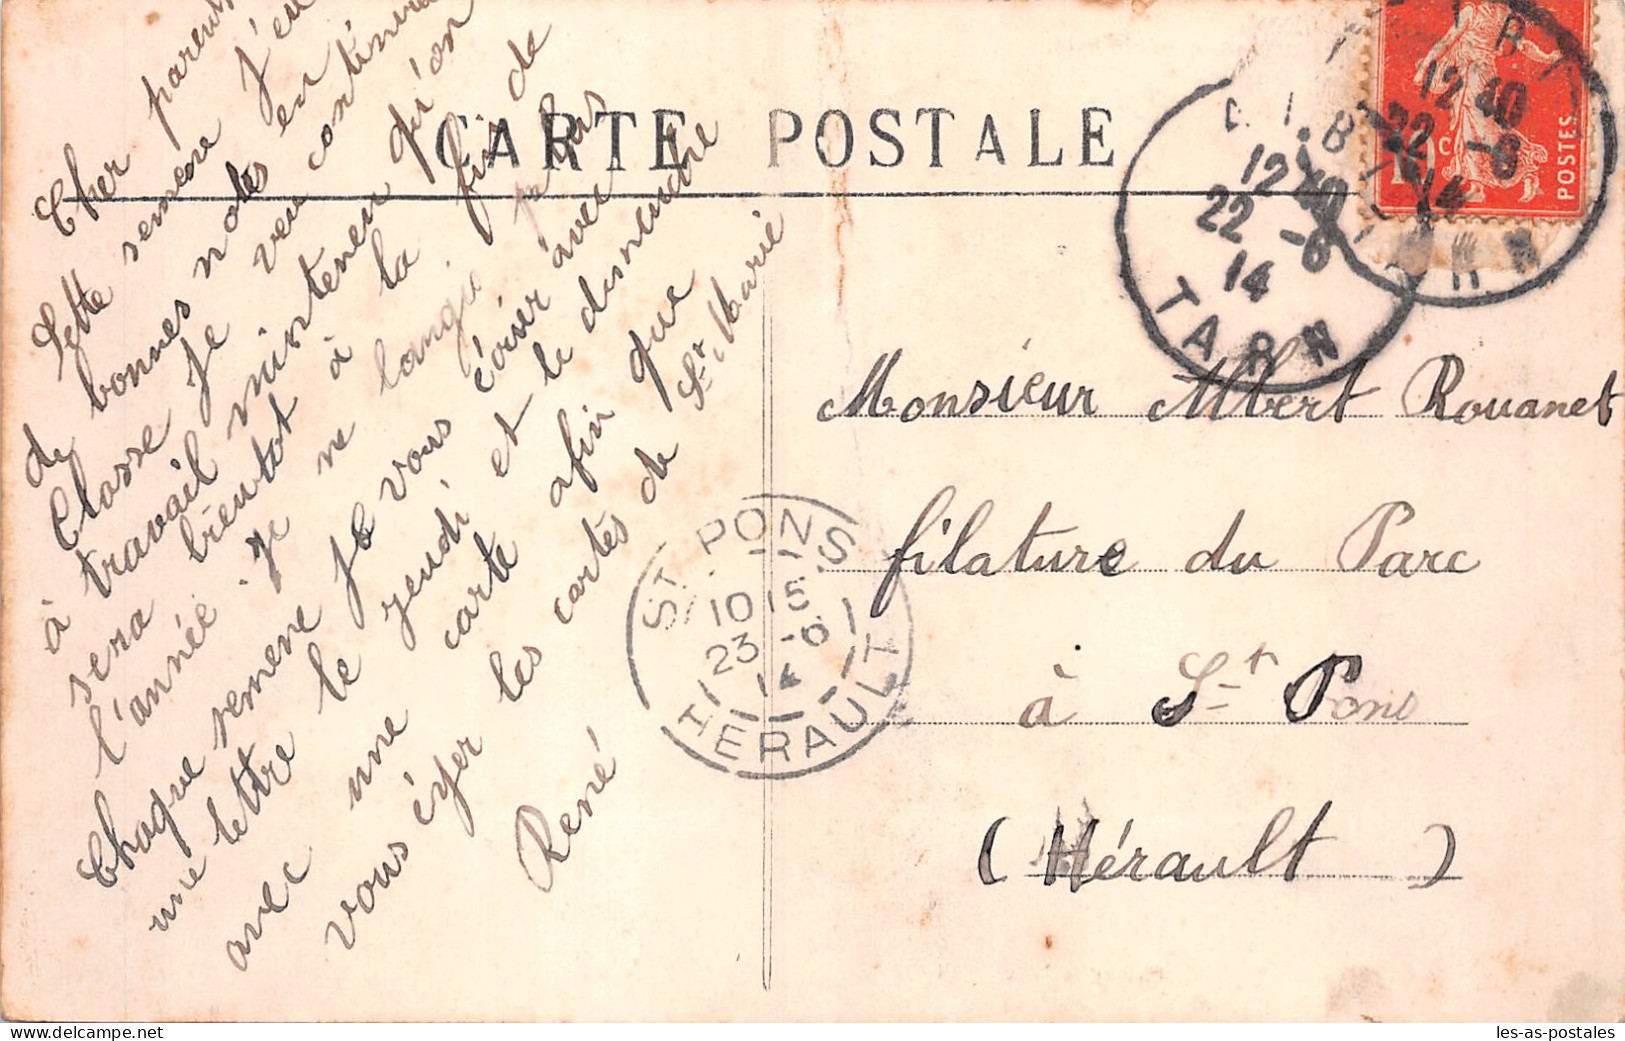 CARTE POSTALE
Cher parents
Cette semene j'eu
de bonnes notes en
Classe je veu continuer
à travail mintenen qu'on
sera bientot à la fin de
l'année je ne langui pas
Chaque semene je vous écrir avec
une lettre le jeudi et le dimendre
avec une carte afin que
vous éyer les cartes de St Marie
René
POSTES
10 c
12 40
22 -6
14
TARN
ALBI
12 40
22 -6
14
TARN
ST PONS
10 15
23 -6
14
HERAULT
Monsieur Albert Rouanet
filature du Parc
à St Pons
(Hérault)
les-as-postales